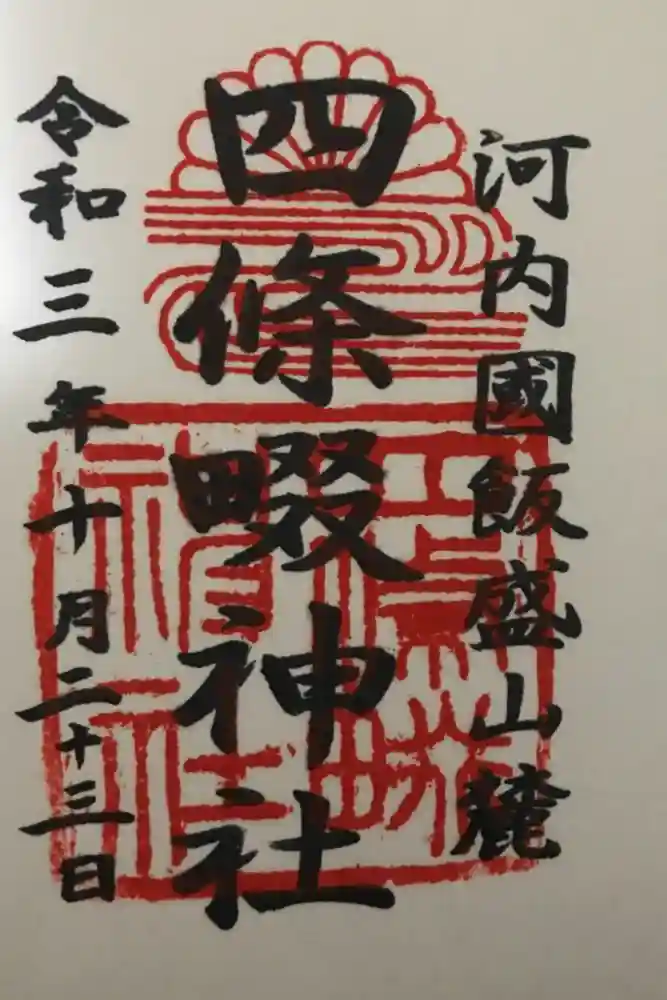 河内國飯盛山麓
四條畷神社
令和三年十月二十三日